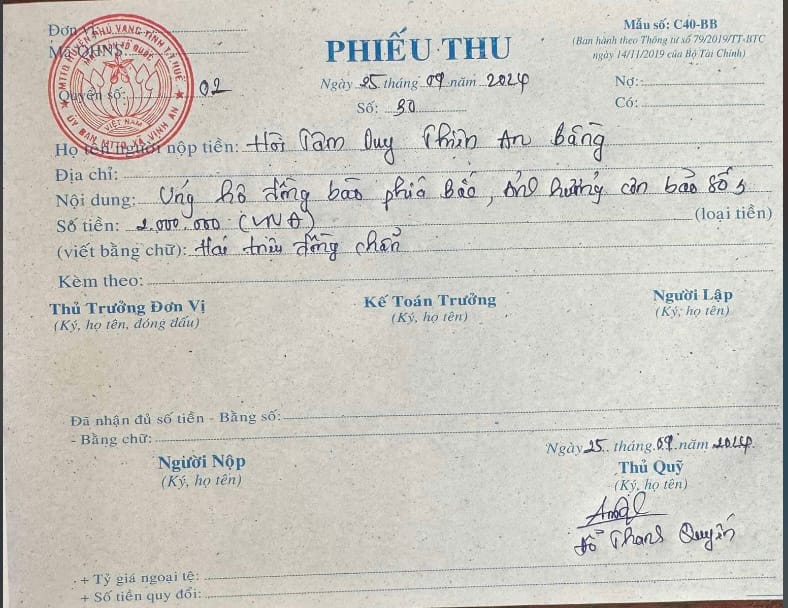 Đơn vị:
Mã QHNS:
Quyển số: 02
MTTQ HUYỆN PHÚ VANG TỈNH TT. HUẾ
TỔ QUỐC
VIỆT NAM
ỦY BAN MTTQ XÃ VINH AN
PHIẾU THU
Ngày 25 tháng 09 năm 2024
Số: 30
Mẫu số: C40-BB
(Ban hành theo Thông tư số 79/2019/TT-BTC
ngày 14/11/2019 của Bộ Tài Chính)
Nợ:
Có:
Họ tên người nộp tiền: Hội Tâm Duy Thiện An Bằng
Địa chỉ:
Nội dung: Ứng hộ đồng bào phía bắc, ảnh hưởng cơn bảo số 3
Số tiền: 2.000.000 (VNĐ) (loại tiền)
(viết bằng chữ): Hai triệu đồng chẳn
Kèm theo:
Thủ Trưởng Đơn Vị Kế Toán Trưởng Người Lập
(Ký, họ tên, đóng dấu) (Ký, họ tên) (Ký, họ tên)
Đã nhận đủ số tiền - Bằng số:
- Bằng chữ:
Ngày 25 tháng 09 năm 2024
Người Nộp Thủ Quỹ
(Ký, họ tên) (Ký, họ tên)
Đỗ Thanh Quyền
+ Tỷ giá ngoại tệ:
+ Số tiền quy đổi: